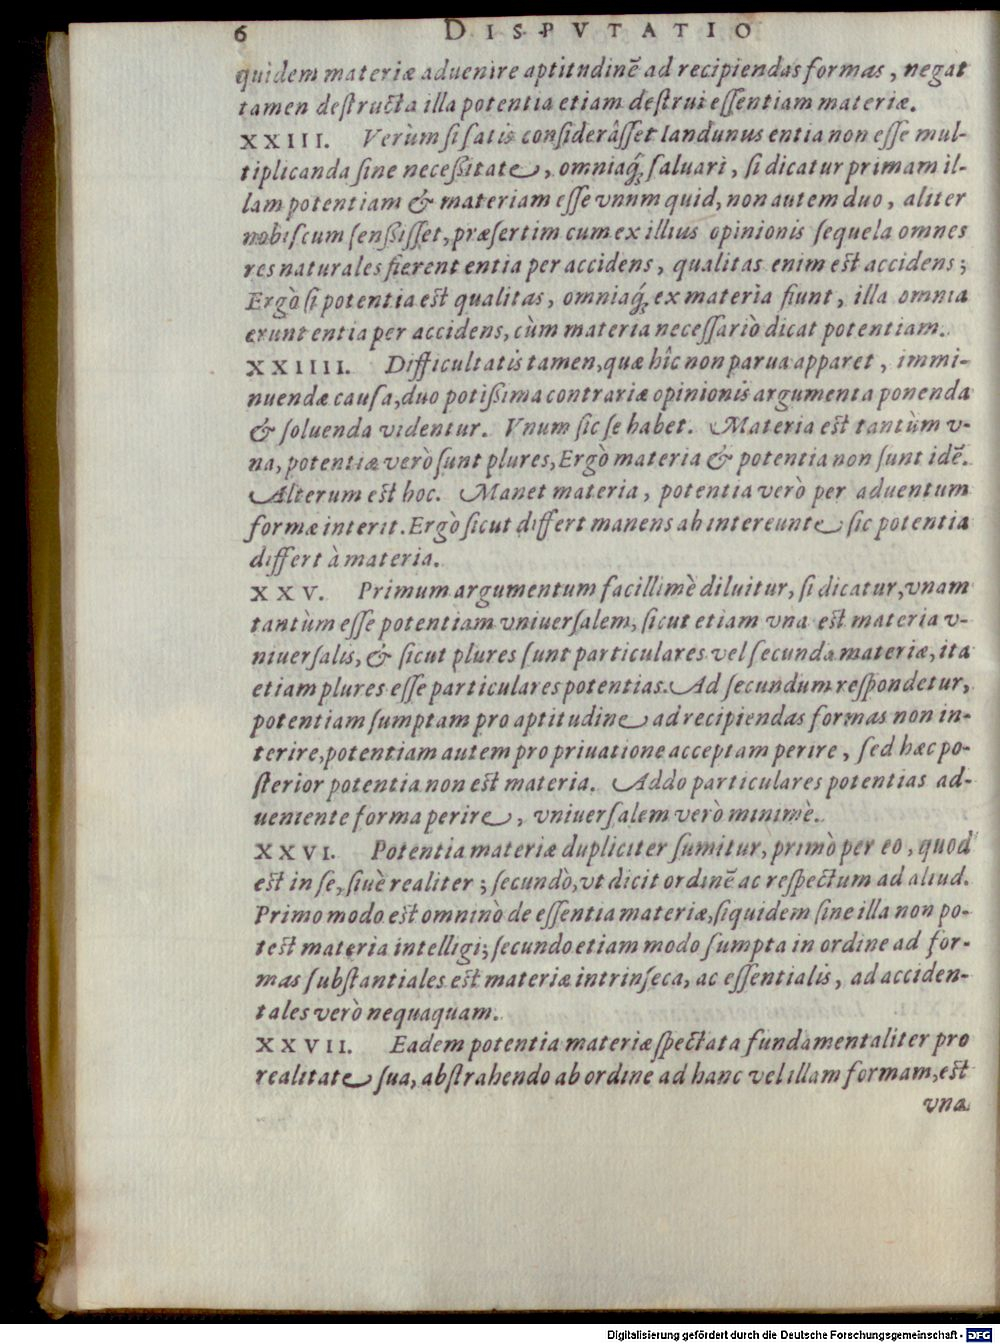 6 DISPVTATIO
quidem materiæ aduenire aptitudinē ad recipiendas formas, negat
tamen destructa illa potentia etiam destrui essentiam materiæ.
XXIII. Verùm si satis considerâsset Iandunus entia non esse mul-
tiplicanda sine necessitate, omniaq́; saluari, si dicatur primam il-
lam potentiam & materiam esse vnum quid, non autem duo, aliter
nobiscum sensisset, præsertim cum ex illius opinionis sequela omnes
res naturales fierent entia per accidens, qualitas enim est accidens;
Ergò si potentia est qualitas, omniaq́; ex materia fiunt, illa omnia
erunt entia per accidens, cùm materia necessariò dicat potentiam.
XXIIII. Difficultatis tamen, quæ hîc non parua apparet, immi-
nuendæ causa, duo potissima contrariæ opinionis argumenta ponenda
& soluenda videntur. Vnum sic se habet. Materia est tantùm v-
na, potentiæ verò sunt plures, Ergò materia & potentia non sunt idē.
Alterum est hoc. Manet materia, potentia verò per aduentum
formæ interit. Ergò sicut differt manens ab intereunte sic potentia
differt à materia.
XXV. Primum argumentum facillimè diluitur, si dicatur, vnam
tantùm esse potentiam vniuersalem, sicut etiam vna est materia v-
niuersalis, & sicut plures sunt particulares vel secunda materiæ, ita
etiam plures esse particulares potentias. Ad secundum respondetur,
potentiam sumptam pro aptitudine ad recipiendas formas non in-
terire, potentiam autem pro priuatione acceptam perire, sed hæc po-
sterior potentia non est materia. Addo particulares potentias ad-
ueniente forma perire, vniuersalem verò minimè.
XXVI. Potentia materiæ dupliciter sumitur, primò per eo, quod
est in se, siuè realiter; secundò, vt dicit ordinē ac respectum ad aliud.
Primo modo est omninò de essentia materiæ, siquidem sine illa non po-
test materia intelligi; secundo etiam modo sumpta in ordine ad for-
mas substantiales est materiæ intrinseca, ac essentialis, ad acciden-
tales verò nequaquam.
XXVII. Eadem potentia materiæ spectata fundamentaliter pro
realitate sua, abstrahendo ab ordine ad hanc vel illam formam, est
vna
Digitalisierung gefördert durch die Deutsche Forschungsgemeinschaft - DFG